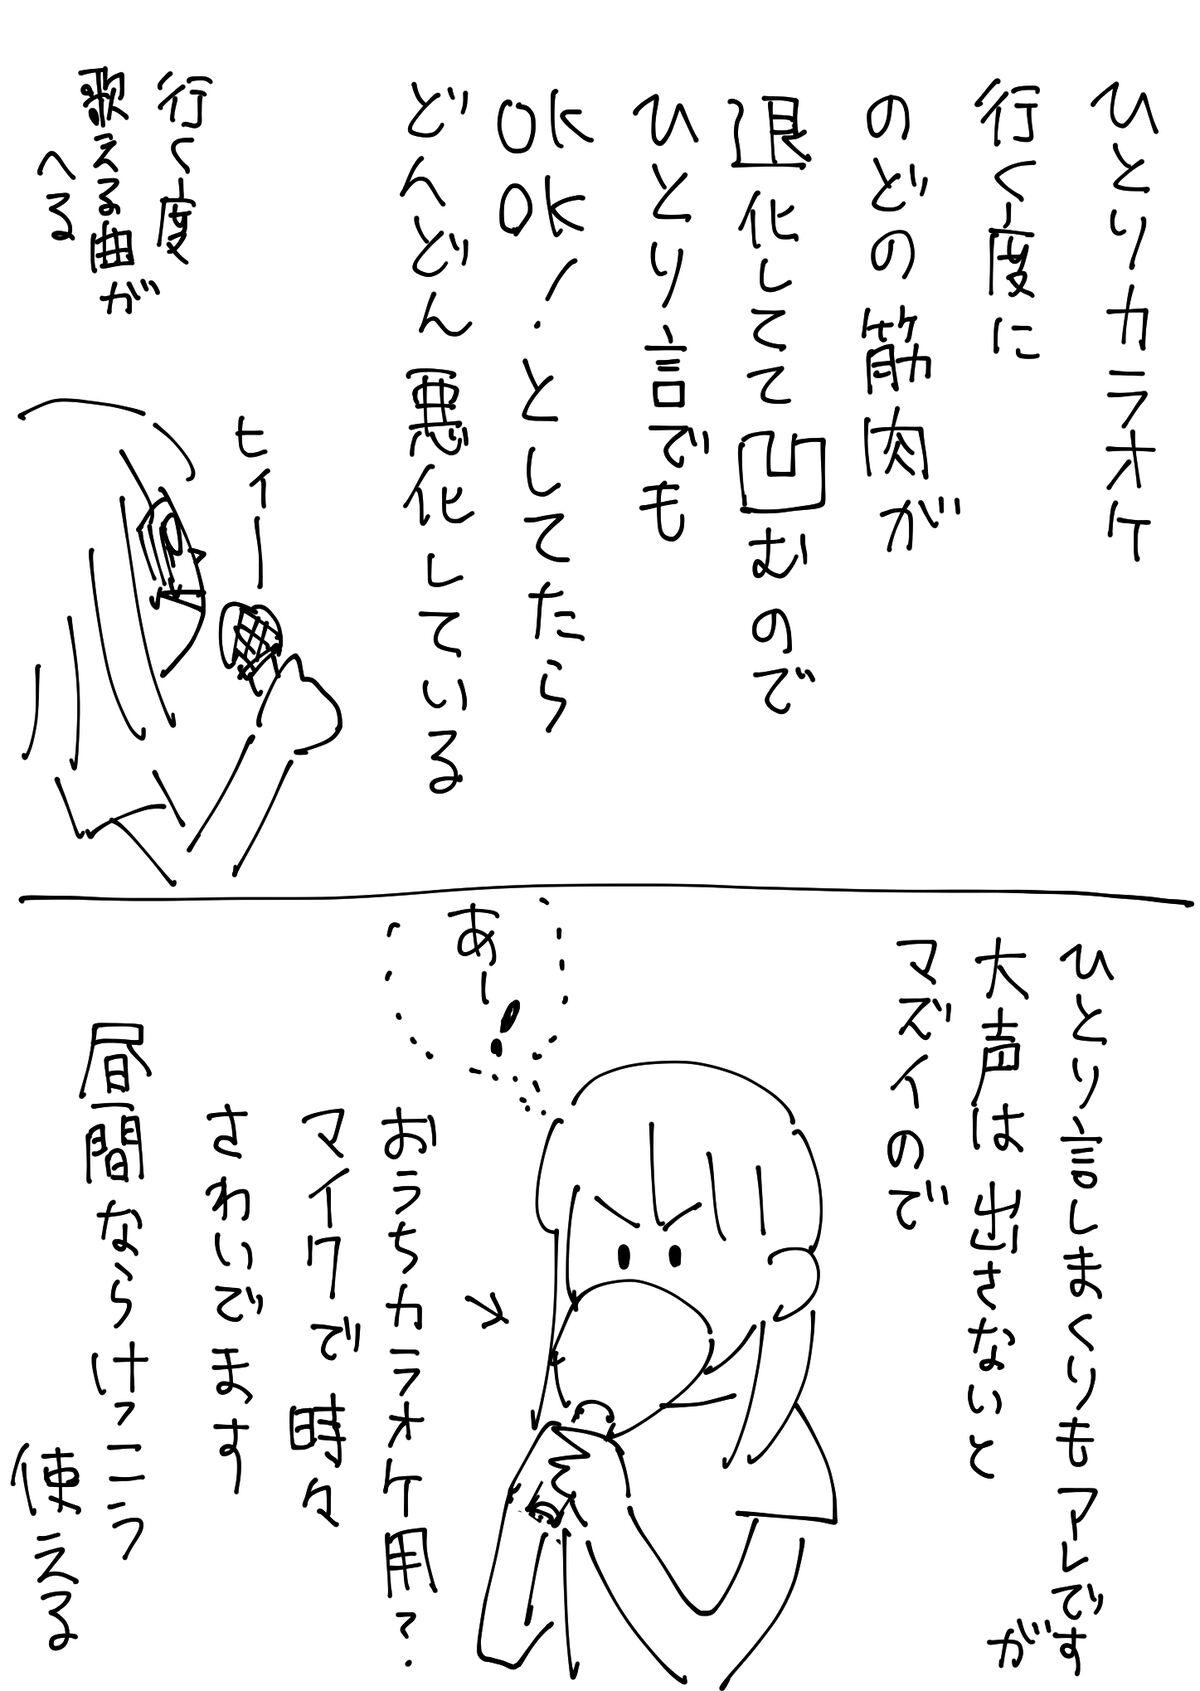 ひとりカラオケ
行く度に
のどの筋肉が
退化してて凹むので
ひとり言でも
OKOK!としてたら
どんどん悪化している
行く度
歌える曲が
へる
ヒィー
ひとり言しまくりもアレです
が
大声は出さないと
マズイので
あー!
おうちカラオケ用?
マイクで時々
さわいでます
昼間ならけっこう
使える